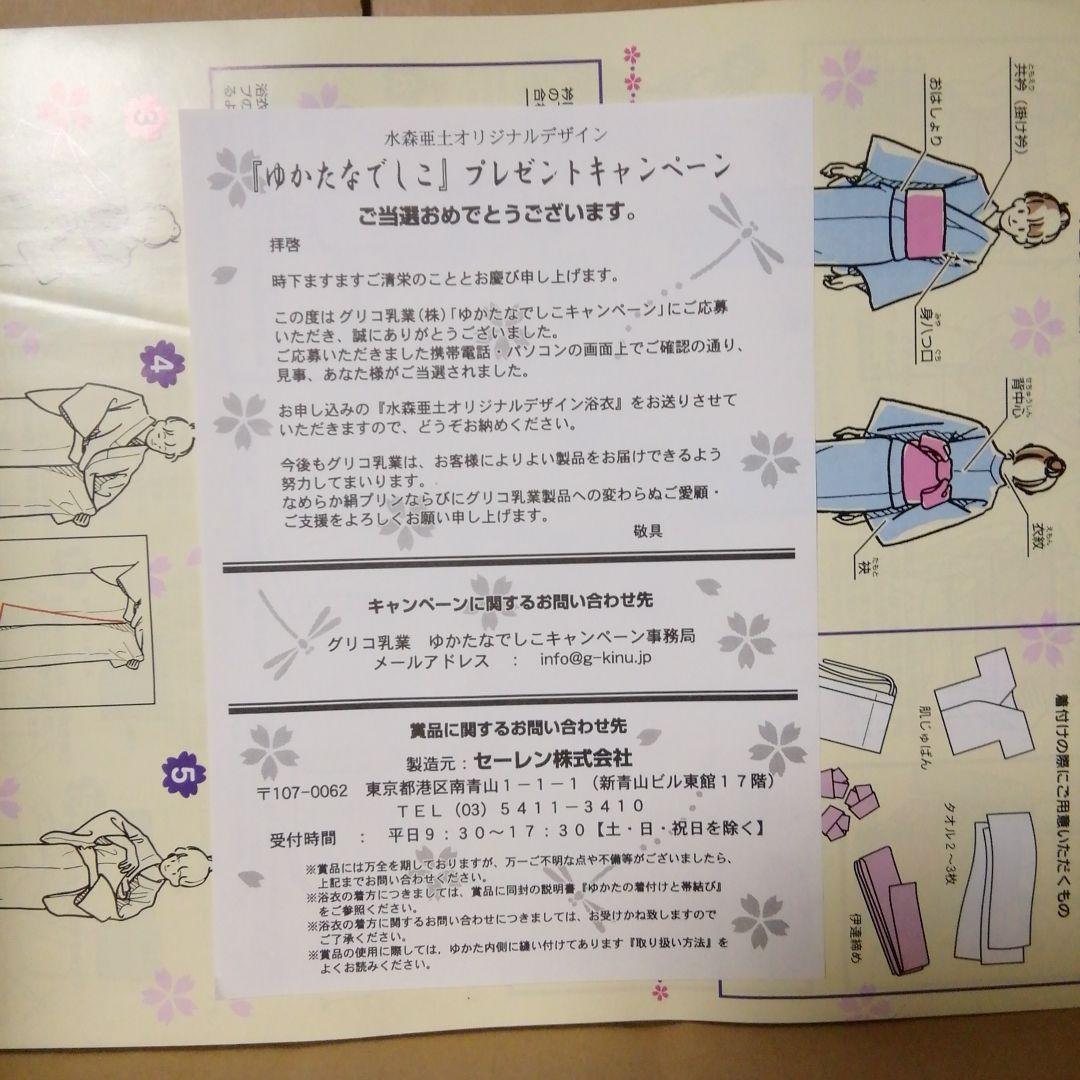 水森亜土オリジナルデザイン
『ゆかたなでしこ』プレゼントキャンペーン
ご当選おめでとうございます。
拝啓
時下ますますご清栄のこととお慶び申し上げます。
この度はグリコ乳業(株)「ゆかたなでしこキャンペーン」にご応募
いただき、誠にありがとうございました。
ご応募いただきました携帯電話・パソコンの画面上でご確認の通り、
見事、あなた様がご当選されました。
お申し込みの『水森亜土オリジナルデザイン浴衣』をお送りさせて
いただきますので、どうぞお納めください。
今後もグリコ乳業は、お客様によりよい製品をお届けできるよう
努力してまいります。
なめらか絹プリンならびにグリコ乳業製品への変わらぬご愛顧・
ご支援をよろしくお願い申し上げます。
敬具
キャンペーンに関するお問い合わせ先
グリコ乳業　ゆかたなでしこキャンペーン事務局
メールアドレス　：　info@g-kinu.jp
賞品に関するお問い合わせ先
製造元：セーレン株式会社
〒107-0062　東京都港区南青山１－１－１（新青山ビル東館１７階）
ＴＥＬ（03）５４１１－３４１０
受付時間　：　平日９：３０～１７：３０【土・日・祝日を除く】
※賞品には万全を期しておりますが、万一ご不明な点や不備等がございましたら、
上記までお問い合わせください。
※浴衣の着方につきましては、賞品に同封の説明書『ゆかたの着付けと帯結び』
をご参照ください。
※浴衣の着方に関するお問い合わせにつきましては、お受けかね致しますので
ご了承ください。
※賞品の使用に際しては、ゆかた内側に縫い付けてあります『取り扱い方法』を
よくお読みください。
3
4
5
共衿（掛け衿）
ともえり
おはしょり
身八つ口
みやつくち
背中心
せちゅうしん
衣紋
えもん
袂
たもと
着付けの際にご用意いただくもの
肌じゅばん
タオル２～３枚
伊達締め